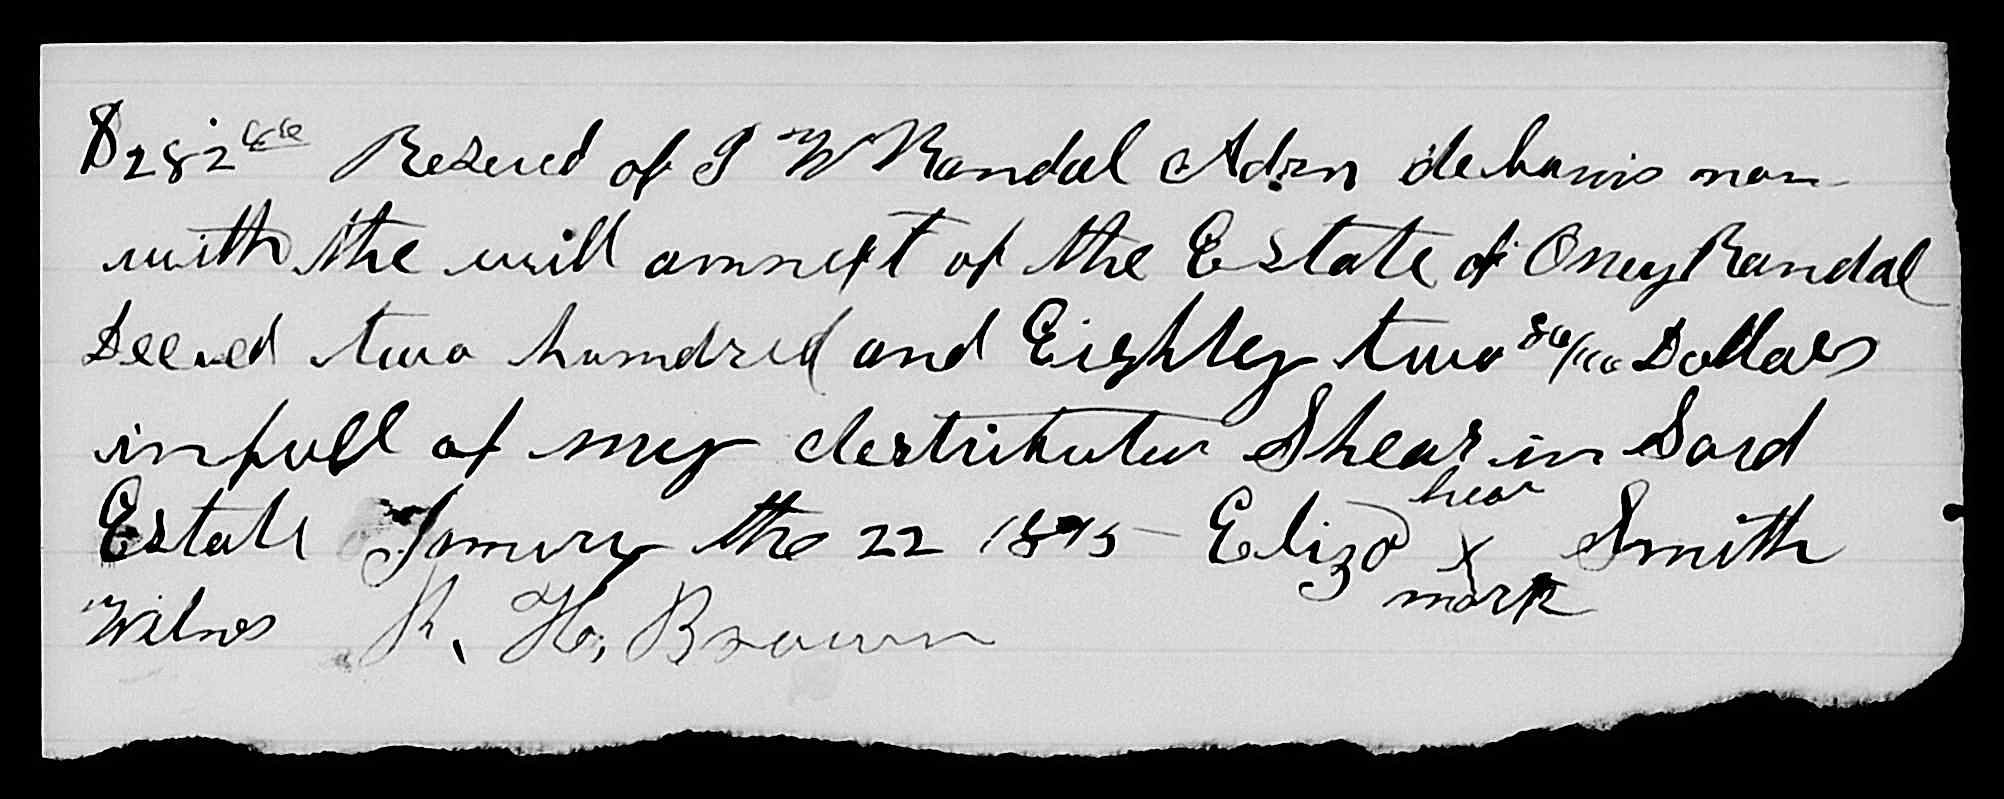 $282 Reseved of J W Randal Adm de bonis non
with the will annext of the Estate of Oney Randal
Deceed two humdred and Eighty two 86/100 Dollars
in full of my destributiv Shear in Said
Estate Janury the 22 1875 Eliza hear x mark Smith
Witnes R. H. Brown